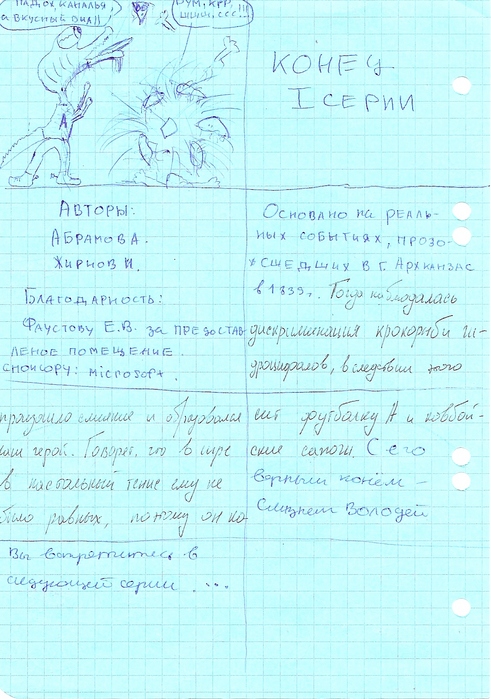 ПАДОХ, КАНАЛЬЯ
А ВКУСНЫЙ БЫЛ!!
НУМ, ХРР,
A
КОНЕЦ
I СЕРИИ
АВТОРЫ:
АБРАМОВ А.
ЖИРНОВ И.
БЛАГОДАРНОСТЬ:
ФАУСТОВУ Е.В. ЗА ПРЕДОСТАВ
ЛЕНОЕ ПОМЕЩЕНИЕ.
СПОНСОРУ: MICROSOFT.
ОСНОВАНО НА РЕАЛЬ-
НЫХ СОБЫТИЯХ, ПРОЗО-
СШЕДШИХ В Г. АРХКАНЗАС
в 1839г. Тогда наблюдалась
дискриминация крокорыби ги-
дроцифалов, в следствии этого
произошло слияние и образовался
наш герой. Говорят, что в игре
в настольный тенис ему не
было равных, потому он но-
сит футболку А и ковбой-
ские сапоги. С его
верным конём –
слизнем Володей
Вы встретитесь в
следующей серии ....